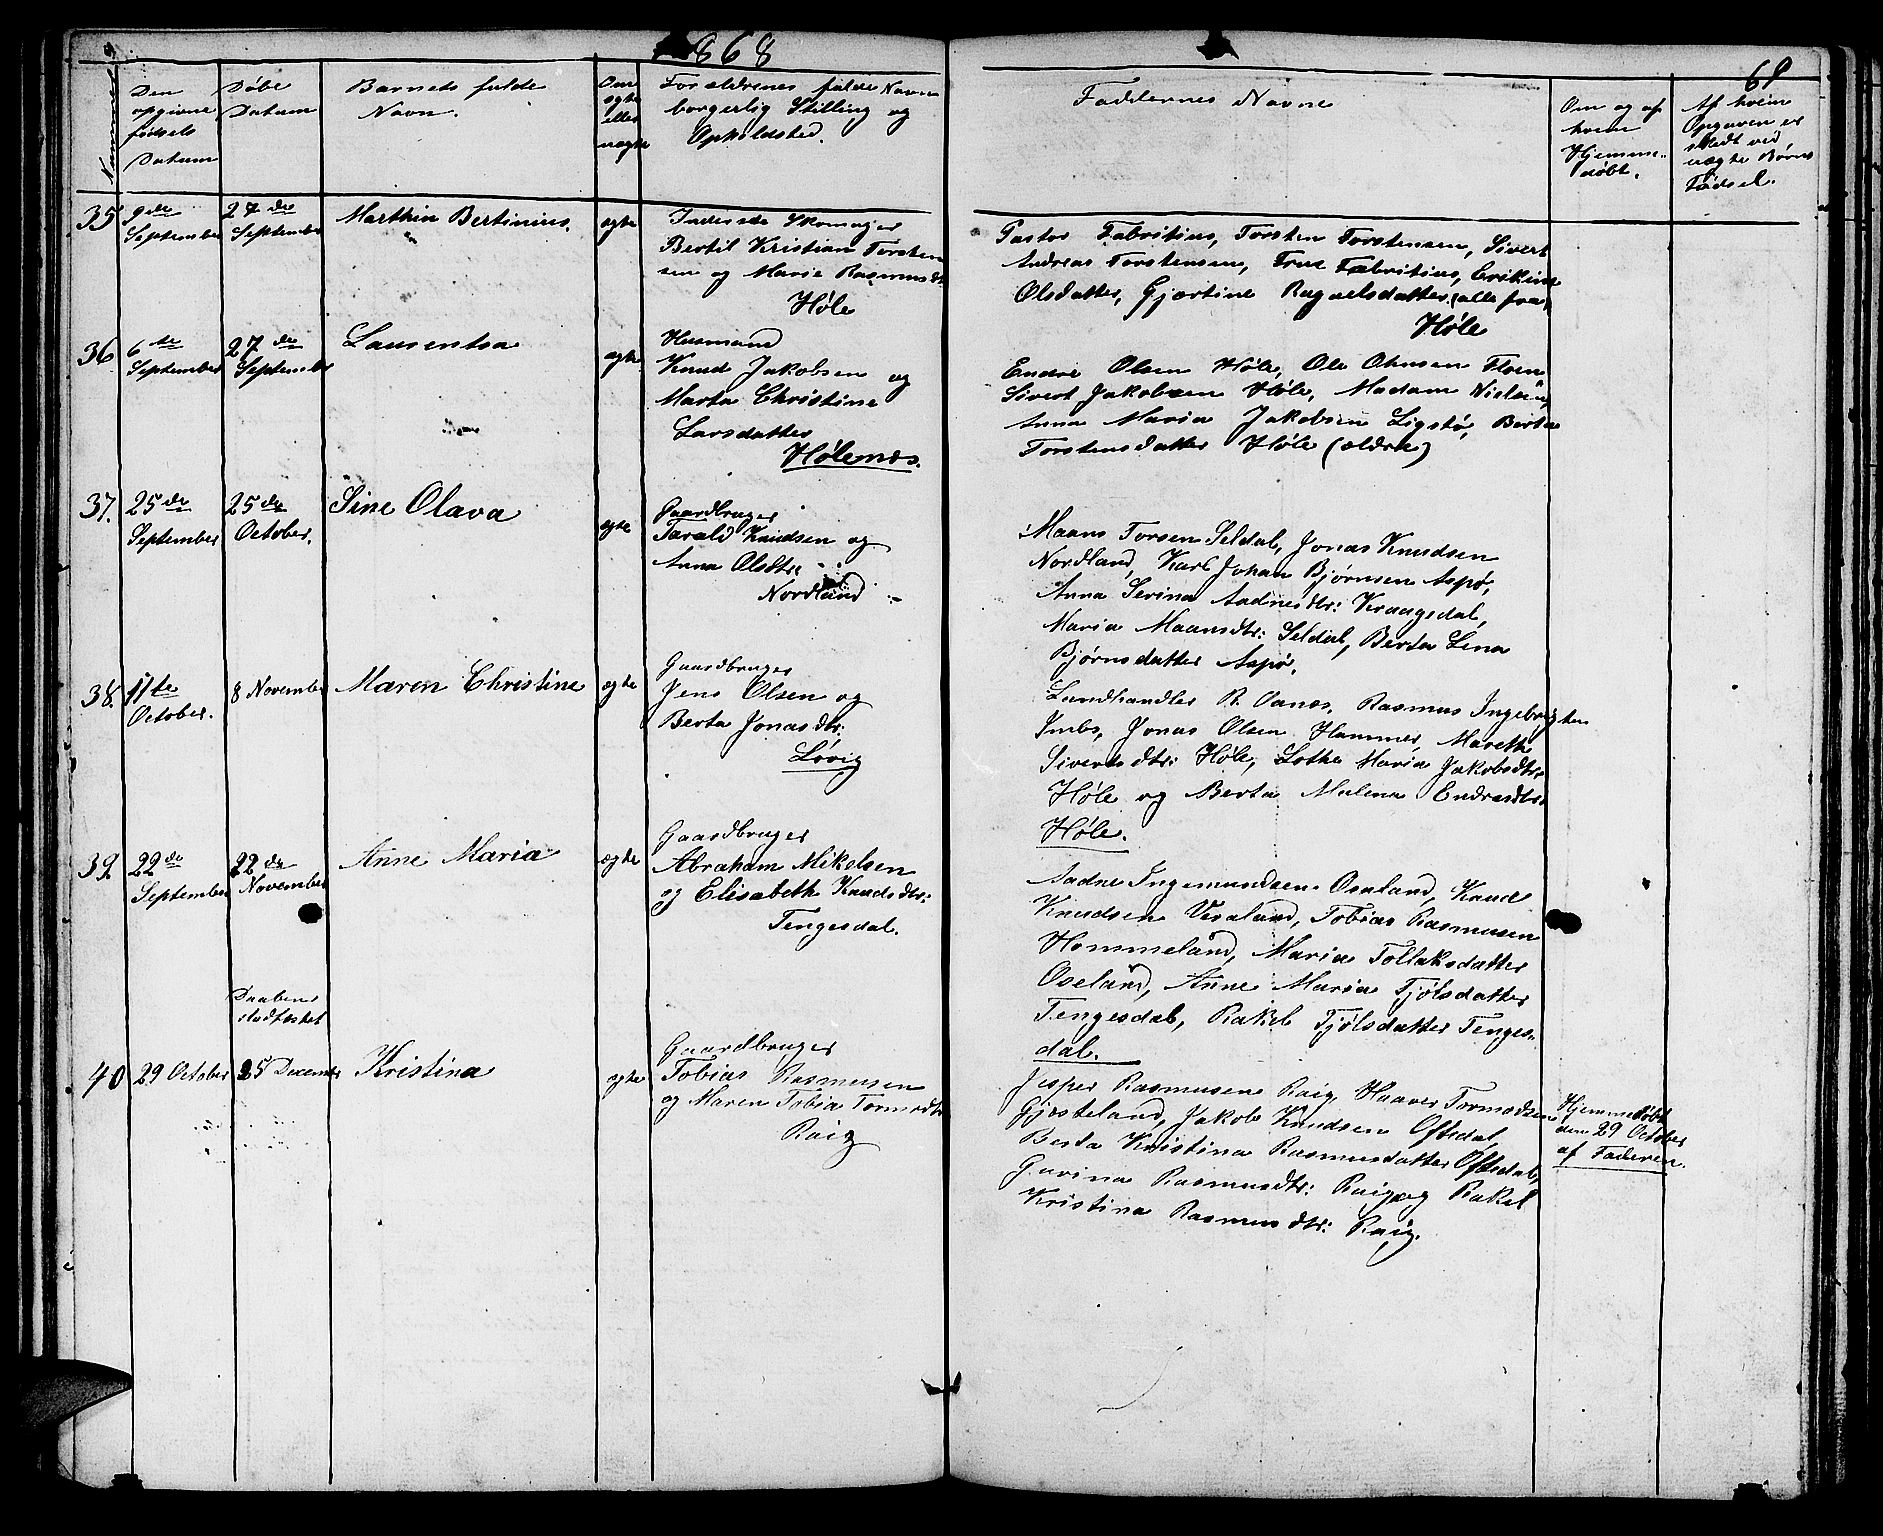 868
69
Nummer
Den
opgivne
fødsels
Datum
Døbe
Datum
Barnets fulde
Navn.
Om
ægte
eller
uægte
Forældrenes fulde Navne
borgerlig Stilling og
Opholdsted.
Faddernes Navne
Om og af
hvem
Hjemme-
døbt.
Af hvem
Opgaven er
skedt ved
uægte Børns
Fødsel.
35 9de September 27de September Marthin Bertinius. ægte
Inderste Skomager
Bertil Kristian Torsten
sen og Marie Rasmusdt.
Høle
Pastor Fabritius, Torsten Torstensen, Sivert
Andreas Torstensen, Frue Fabritius, Erikine
Olsdatter, Gjertine Ragnelsdatter (alle fra)
Høle
36 6te September 27de September Laurentsa ægte
Husmand
Knud Jakobsen og
Marta Christine
Larsdatter
Hølenæs.
Endre Olsen Høle, Ole Ohnsen Floen
Sivert Jakobsen Høle, Madam Nielsen,
Anna Maria Jakobsen Ligstø, Berta
Torstensdatter Høle (ældre)
37. 25de September 25de October. Sine Olava ægte
Gaardbruger
Tarald Knudsen og
Anna Olsdtr
Nordland
Maans Torsen Seldal, Jonas Knudsen
Nordland, Karl Johan Bjørnsen Aspø,
Anna Serina Aadnesdtr: Kraagedal,
Maria Maansdtr: Seldal, Berta Lena
Bjørnsdatter Aspø.
38. 11te October. 8 November Maren Christine ægte
Gaardbruger
Jens Olsen og
Berta Jonasdtr:
Løvig
Landhandler R. Aanes, Rasmus Ingebrigtsen
Imbs, Jonas Olsen Hammer, Marethe
Siversdtr: Høle, Lothe Maria Jakobsdtr:
Høle og Berta Malena Endresdtr:
Høle.
39. 22de September 22de November Anne Maria ægte
Gaardbruger
Abraham Mikalsen
og Elisabeth Knudsdtr:
Tengesdal.
Aadne Ingemundsen Oseland, Knud
Knudsen Vesaland, Tobias Rasmusen
Hommeland, Maria Tollaksdatter
Oseland, Anne Maria Tjølsdatter
Tengesdal, Rakel Tjølsdatter Tenges-
dal.
Daaben
stadfæstet
40 29 October 25 December Kristina ægte
Gaardbruger
Tobias Rasmusen
og Maren Tobia Tormodtr
Raig
Jesper Rasmusene Raig, Haaver Tormodsen
Gjøsteland, Jakob Knudsen Oftedal,
Berta Kristina Rasmusdatter Oftedal,
Gurina Rasmusdtr: Raig og Rakel
Kristina Rasmusdtr: Raig.
Hjemmedøbt
den 29 October
af Faderen.